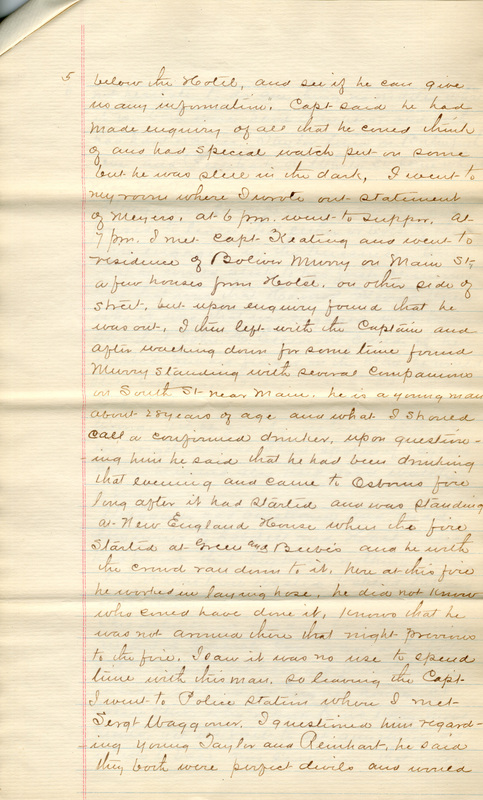 5 below the Hotel, and see if he can give
us any information. Capt said he had
made enquiry of all that he coued think
of and had special watch put on some
but he was still in the dark, I went to
my room where I wrote out statement
of Meyers, at 6 pm. went to suppr. at
7 pm. I met Capt Keating and went to
residence of Boliver Murry on Main St,
a few houses from Hotel. on other side of
street. but upon enquiry found that he
was out, I then left with the Captain and
after waching down for some time found
Murry standing with several companions
on South St near Main. he is a young man
about 28 years of age and what I should
call a confirmed drinker. upon question-
ing him he said that he had been drinking
that evening and came to Osborns fire
long after it had started and was standing
at New England House when the fire
started at Green and Beebes and he with
the crowd ran down to it. here at this fire
he worked in laying hose. he did not know
who coued have done it, Knows that he
was not around there that night previous
to the fire. I saw it was no use to spend
time with this man. so leaving the Capt
I went to Police Station where I met
Sergt Waggoner. I questioned him regard-
ing young Taylor and Reinhart. he said
they both were perfect devils and would